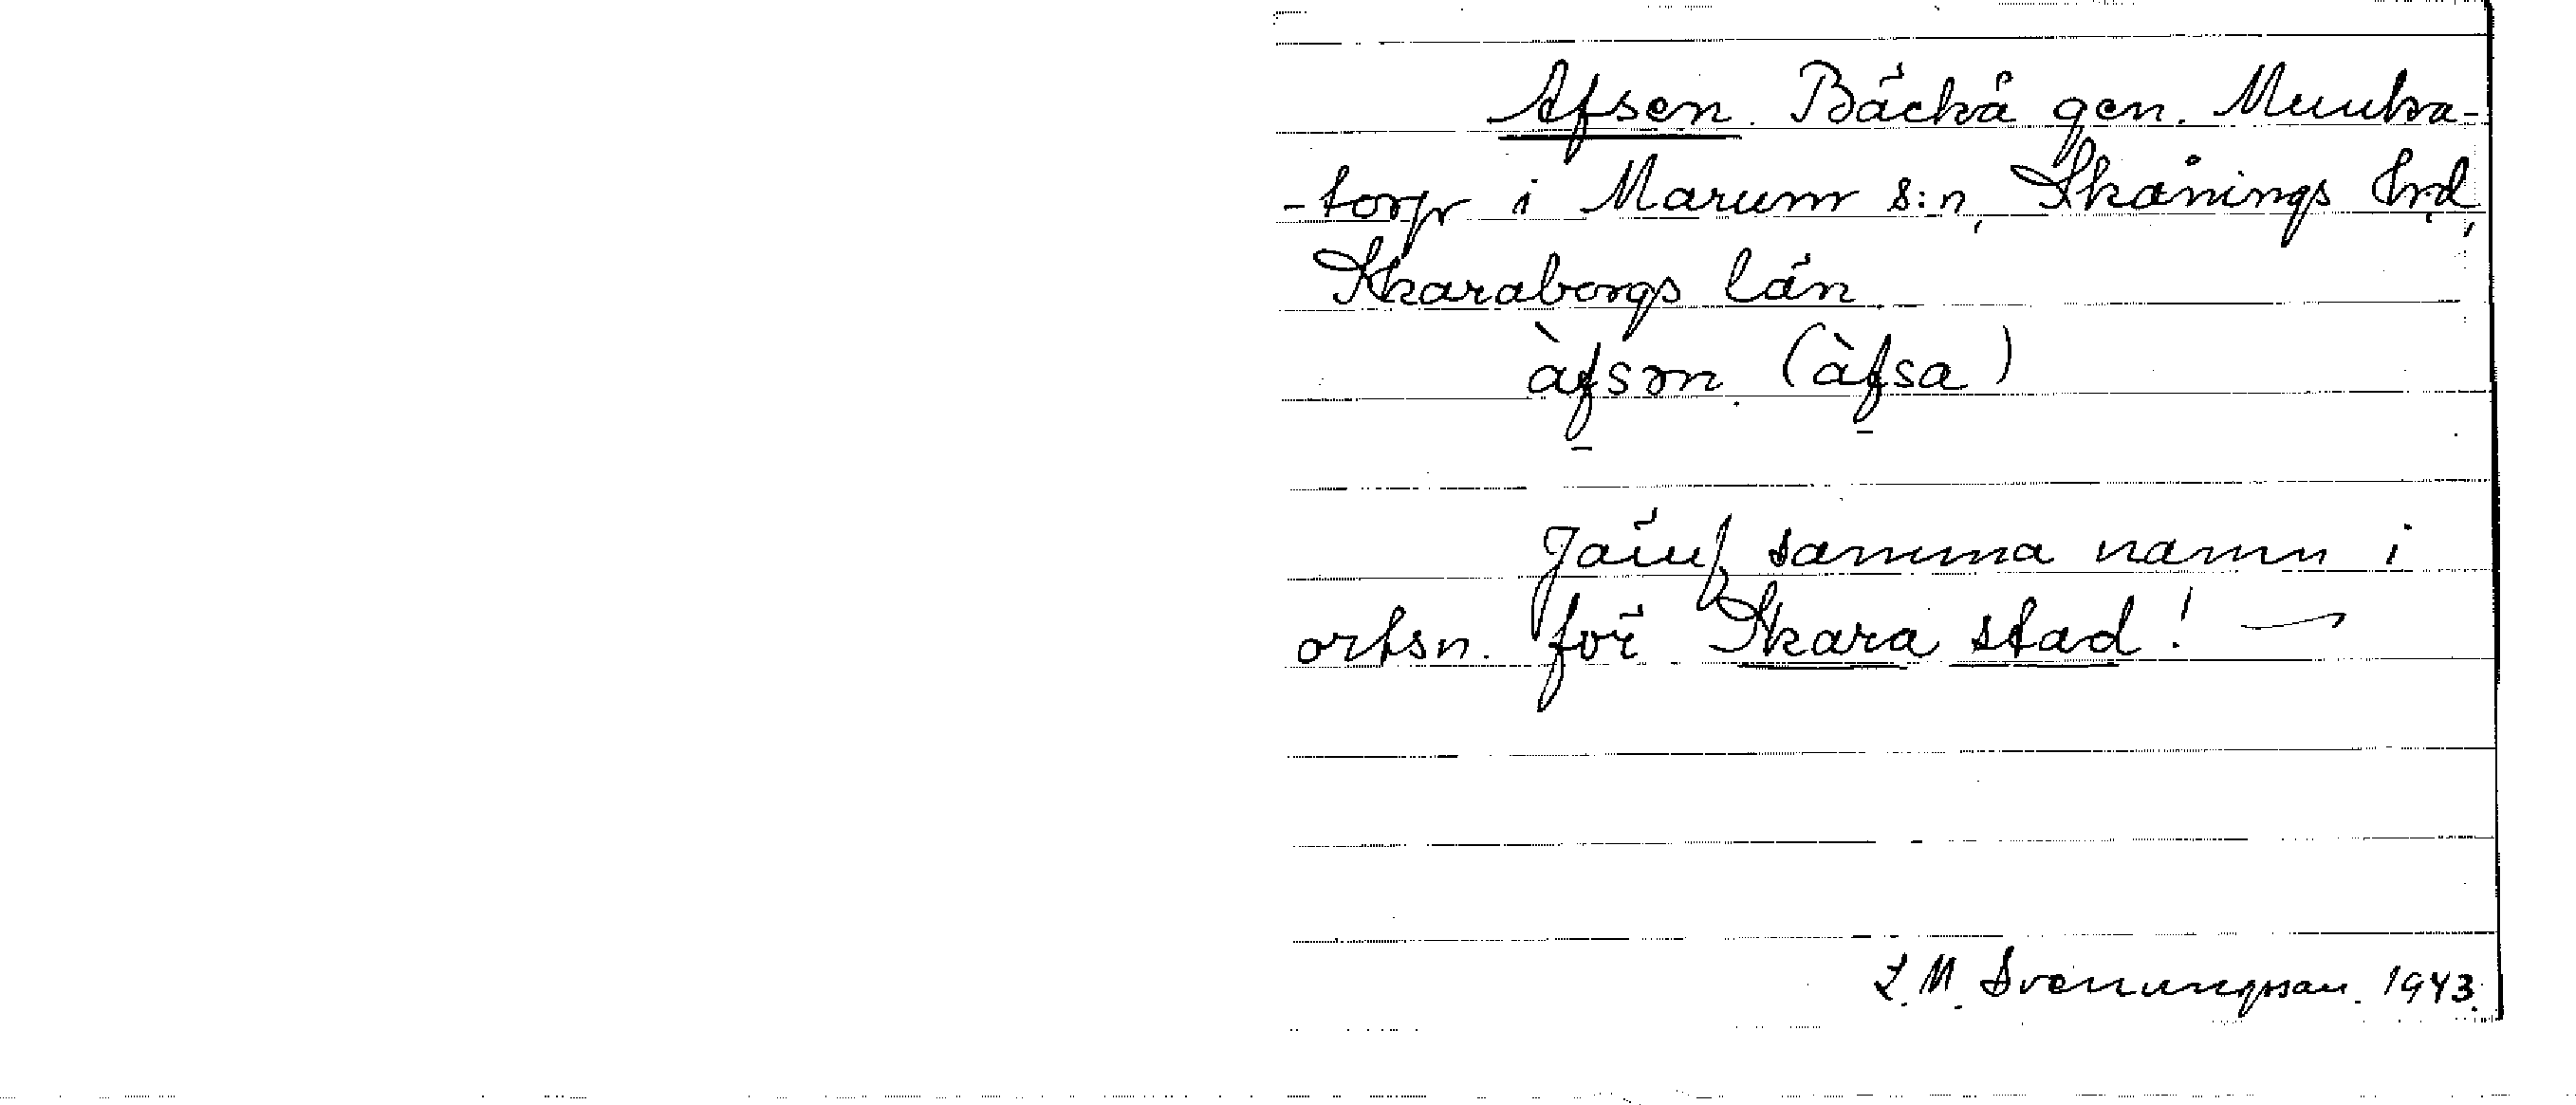 Afsen. Bäckå gen. Munka-
-torp i Marum s:n, Skånings Hrd,
Skaraborgs län
àfsən. (àfsa)
Jämf samma namn i
ortsn. för Skara stad! —
L. M. Svenungsson. 1943.